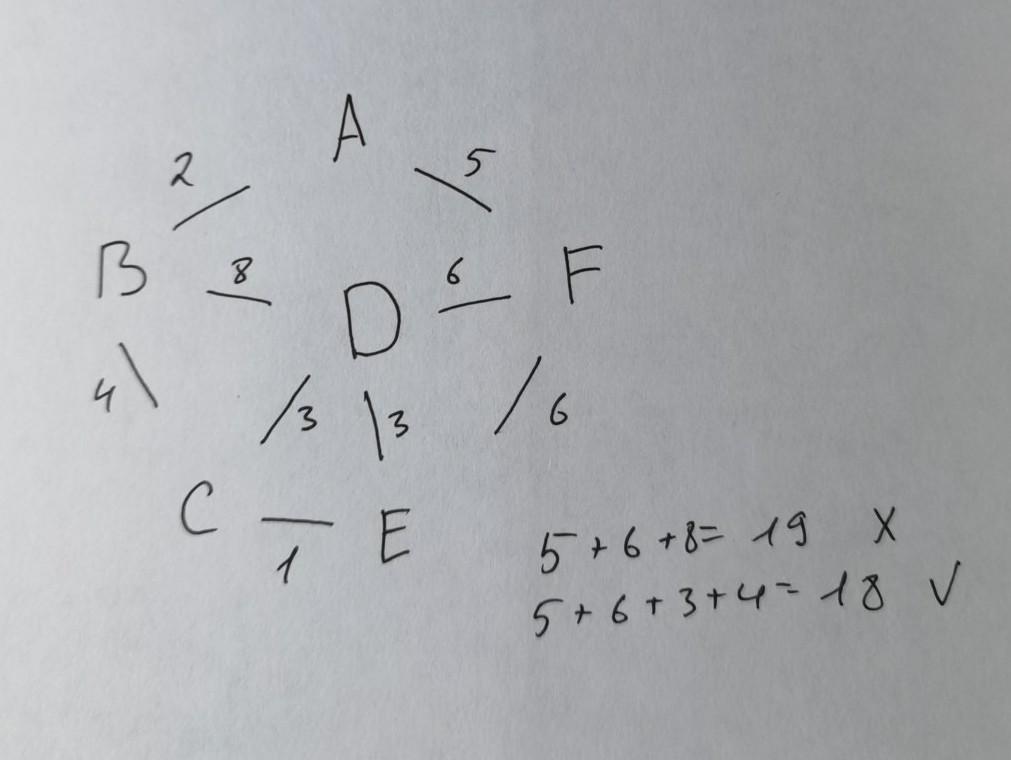 A
2 5
B 8 D 6 F
4 3 3 6
C 1 E
5 + 6 + 8 = 19 X
5 + 6 + 3 + 4 = 18 ✓